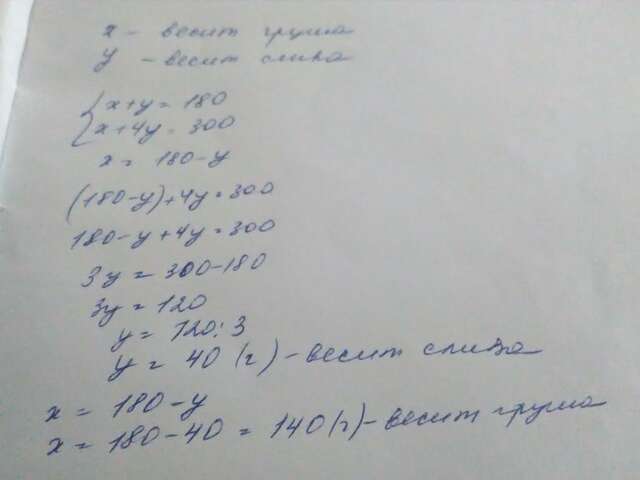 x - весит груша
y - весит слива
{ x+y = 180
x+4y = 300
x = 180-y
(180-y)+4y=300
180-y+4y=300
3y = 300-180
3y = 120
y = 120:3
y = 40 (г) - весит слива
x = 180-y
x = 180-40 = 140 (г) - весит груша